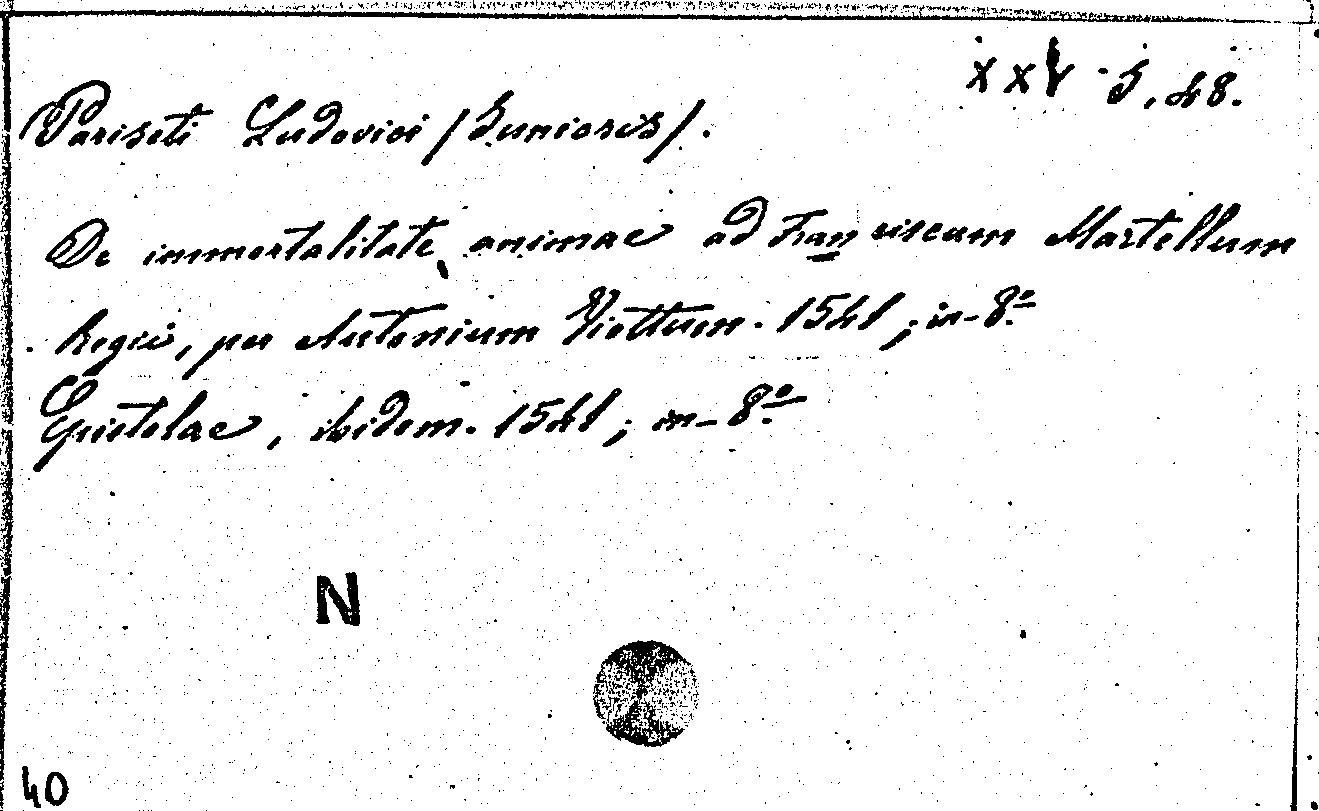 XXV · 5, 48.
Pariseti Ludovici (Junioris).
De immortalitate animae ad Franciscum Martellum
Regii, per Antonium Viottum. 1541; in-8º.
Epistolae, ibidem. 1541; in-8º.
N
40